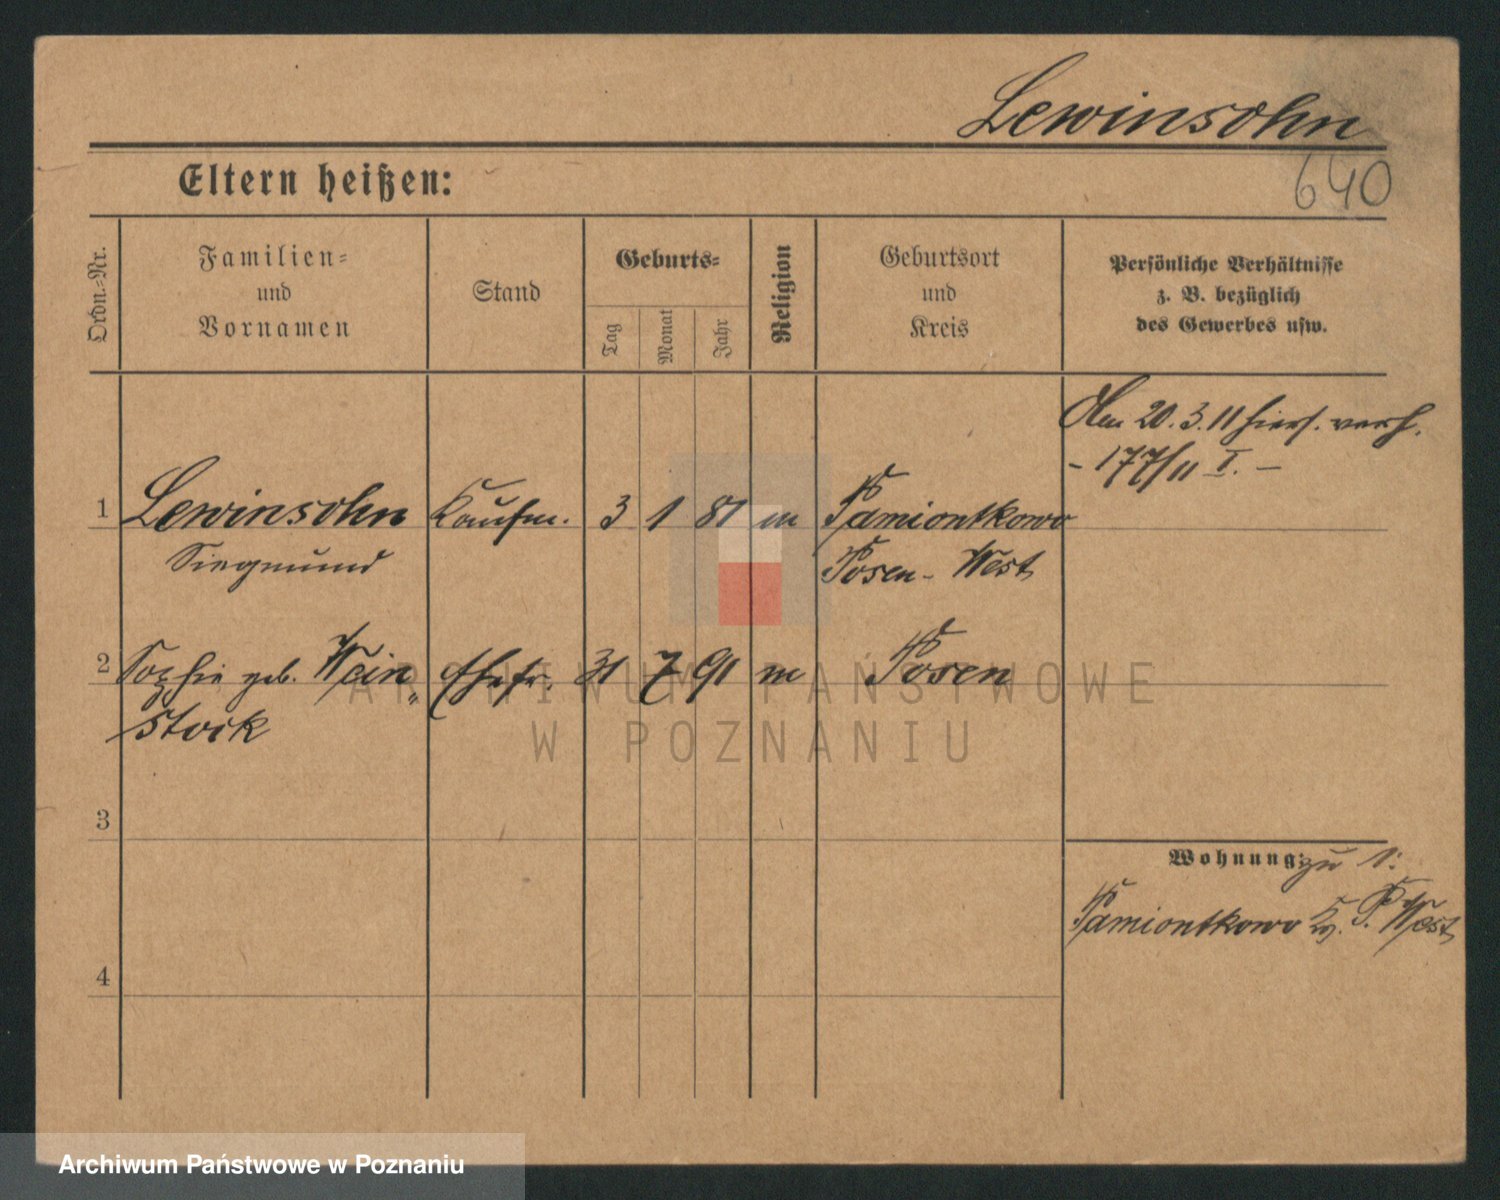 Lewinsohn
640
Eltern heißen:
Ordn.-Nr.
Familien-
und
Vornamen
Stand
Geburts-
Tag
Monat
Jahr
Religion
Geburtsort
und
Kreis
Persönliche Verhältnisse
z. B. bezüglich
des Gewerbes usw.
Am 20.3.11 hiers. verh.
- 177/11 I. -
1 Lewinsohn Kaufm. 3 1 81 m Pamiontkowo
Siegmund Posen-West
2 Sophie geb. Wein„ Ehefr. 31 7 91 m Posen
stock
3
Wohnung: zu 1:
Pamiontkowo Kr. P. West
4
ARCHIWUM PAŃSTWOWE
W POZNANIU
Archiwum Państwowe w Poznaniu